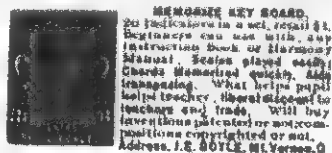 MEMORIZE KEY BOARD.
20 Indicators in a set, retail $1.
Beginners can use with any
Instruction Book or Harmony
Manual. Scales played easily
Chords Memorized quickly, Aids
transposing. What helps pupil
helps teacher, liberal discount to
teachers and trade. Will buy
inventions patented or not, com-
positions copyrighted or not.
Address, J.E. DOYLE, Mt. Vernon, O.